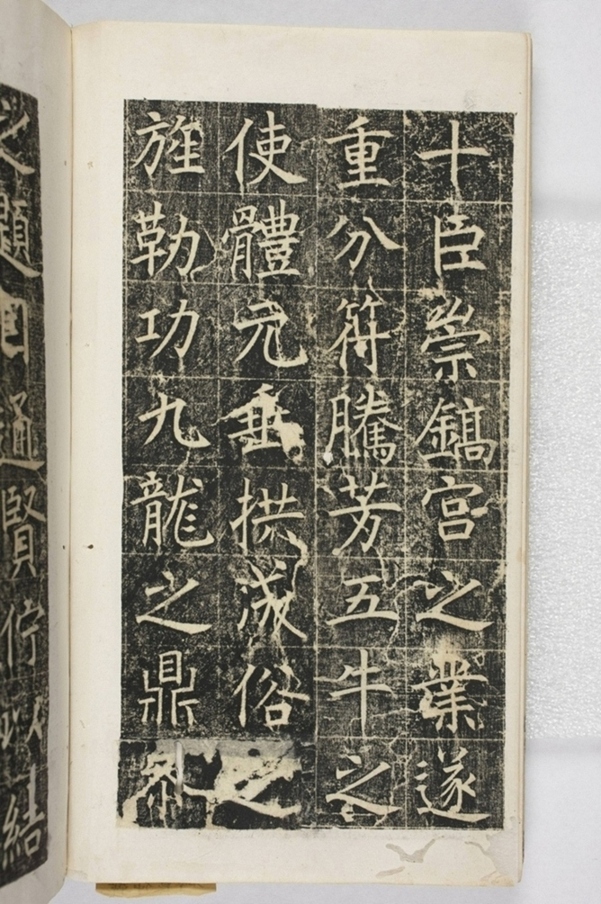 十臣崇鎬宮之業遂
重分符騰芳五牛之
使體元垂拱俗之
旌勒功九龍之鼎
之題目通賢佇以結